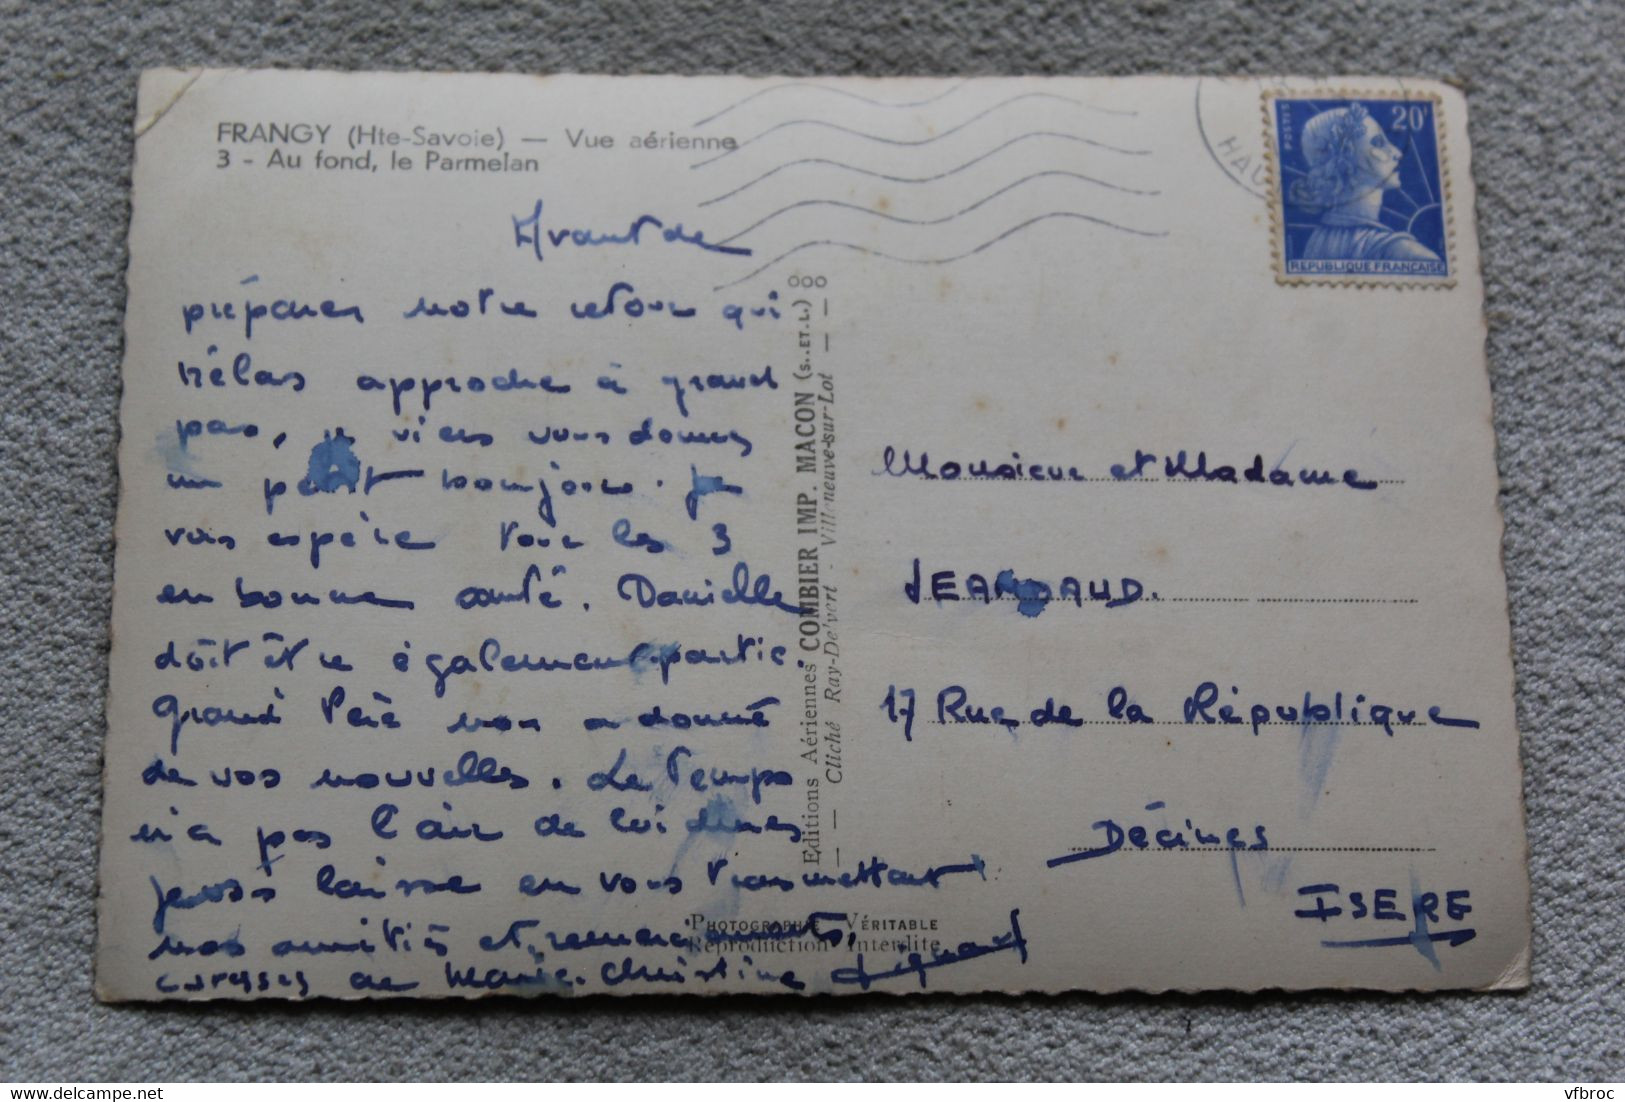 FRANGY (Hte-Savoie) — Vue aérienne
3 - Au fond, le Parmelan
Avant de
préparer notre retour qui
hélas approche à grand
pas, je viens vous donner
un petit bonjour. Je
vous espère tous les 3
en bonne santé. Danielle
doit être également partie.
Grand Père nous a donné
de vos nouvelles. Le temps
n'a pas l'air de
laisse en vous transmettant
nos amitiés et remerciements,
caresses de Marie-Christine
Editions Aériennes COMBIER IMP. MACON (S.-ET-L.) ooo
— Cliché Ray-De'vert - Villeneuve-sur-Lot — —
PHOTOGRAPHIE VÉRITABLE
Reproduction Interdite
POSTES
20F
REPUBLIQUE FRANÇAISE
HAU
Monsieur et Madame
JEANDAUD.
17 Rue de la République
Décines
ISERE
vfbroc